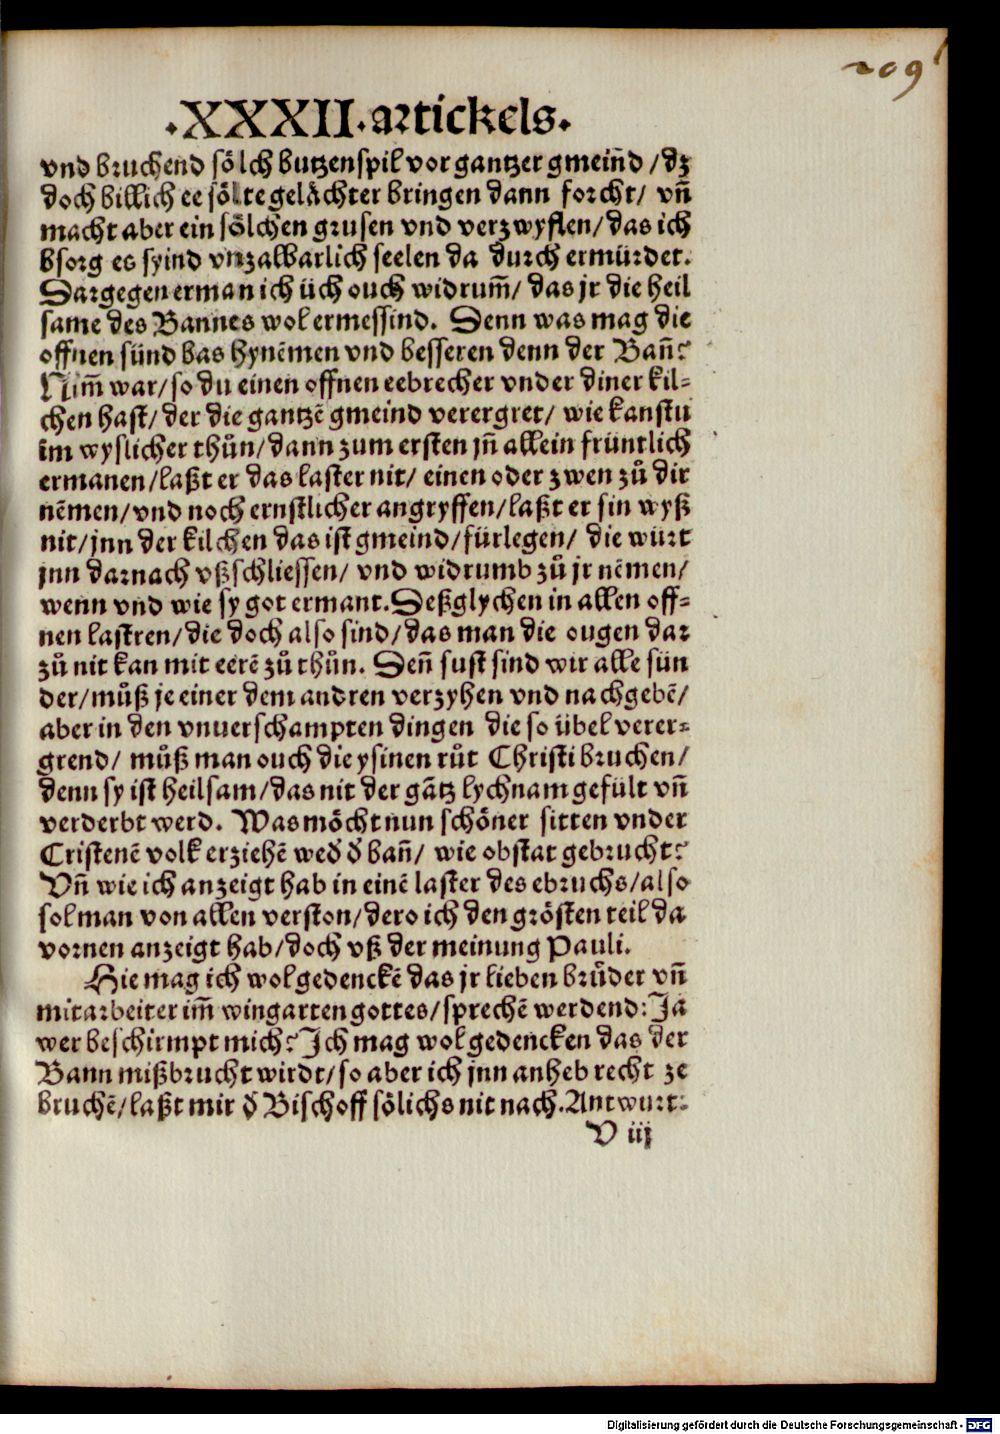 209
.XXXII. artickels.
vnd bruchend sölch butzenspil vor gantzer gmeiñd /dʒ
doch billich ee sölte gelächter bringen dann forcht/ vñ
macht aber ein sölchen grusen vnd verzwyflen/das ich
bsorg es syind vnzalbarlich seelen da durch ermürdet.
Dargegen erman ich üch ouch widrum̃/ das jr die heil
same des Bannes wol ermessind. Denn was mag die
offnen sünd bas hynēmen vnd besseren denn der Bañ?
Nim̃ war/so du einen offnen eebrecher vnder diner kil-
chen hast/ der die gantzē gmeind verergret/ wie kanstu
im wyslicher thůn/dann zum ersten jñ allein früntlich
ermanen/laßt er das laster nit/ einen oder zwen zů dir
nēmen/vnd noch ernstlicher angryffen/laßt er sin wyß
nit/jnn der kilchen das ist gmeind/fürlegen/ die würt
jnn darnach vßschliessen/ vnd widrumb zů jr nēmen/
wenn vnd wie sy got ermant. Deßglychen in allen off-
nen lastren/die doch also sind/das man die ougen dar
zů nit kan mit eerē zů thůn. Deñ sust sind wir alle sün
der/můß je einer dem andren verzyhen vnd nachgebē/
aber in den vnuerschampten dingen die so übel verer-
grend/ můß man ouch die ysinen růt Christi bruchen/
denn sy ist heilsam/das nit der gātz lychnam gefült vñ
verderbt werd. Was möcht nun schöner sitten vnder
Cristenē volk erziehē wed̓ d̓ bañ/ wie obstat gebrucht?
Vñ wie ich anzeigt hab in einē laster des ebruchs/also
sol man von allen verston/dero ich den grösten teil da
vornen anzeigt hab/doch vß der meinung Pauli.
Hie mag ich wol gedenckē das jr lieben brůder vñ
mitarbeiter im̃ wingarten gottes/sprechē werdend: Ja
wer beschirmpt mich? Ich mag wol gedencken das der
Bann mißbrucht wirdt/so aber ich jnn anheb recht ze
bruchē/laßt mir d̓ Bischoff sölichs nit nach. Antwurt:
V iij
Digitalisierung gefördert durch die Deutsche Forschungsgemeinschaft - DFG